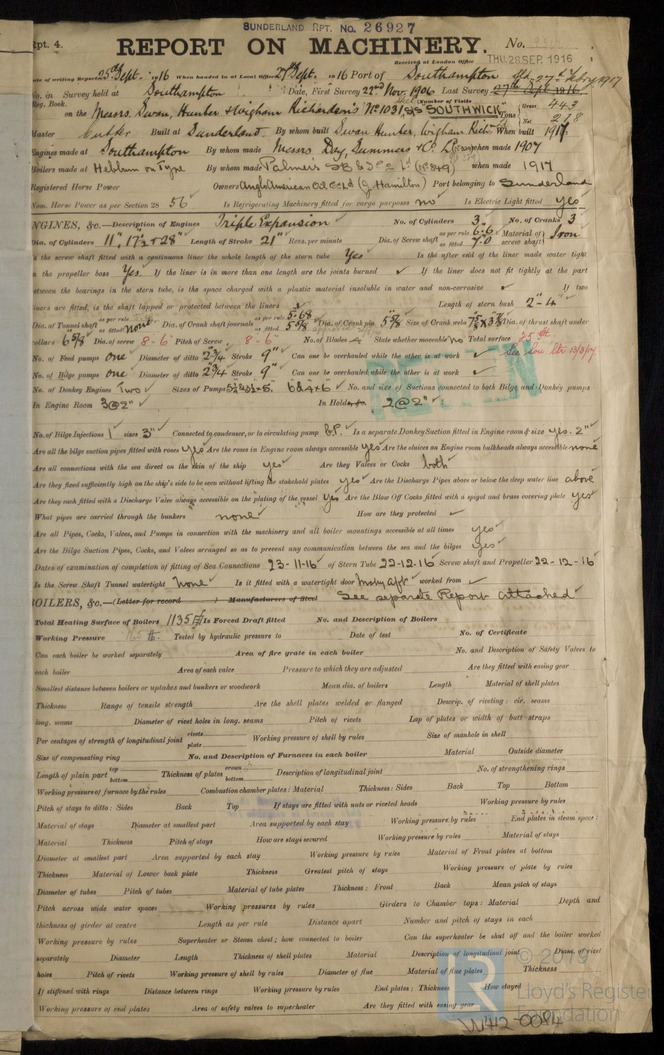 SUNDERLAND RPT. No. 26927
Rpt. 4.
REPORT ON MACHINERY.
No.
Received at London Office
THU.28 SEP. 1916
Date of writing Report 25th Sept. 1916 When handed in at Local Office 27th Sept. 1916 Port of Southampton
No. in Survey held at Southampton Date, First Survey 22nd Nov. 1906 Last Survey 27th Sept 1916
Reg. Book. (Number of Visits
on the Messrs. Swan, Hunter & Wigham Richardson's No 1031 S/S SOUTHWICK Tons Gross 443 Net 218
Master Built at Sunderland By whom built Swan Hunter, Wigham Rich When built 1917
Engines made at Southampton By whom made Messrs Day, Summers & Co Ld when made 1907
Boilers made at Hebburn on Tyne By whom made Palmer's SB & I Co Ld (No 849) when made 1917
Registered Horse Power Owners Anglo American Oil Co Ld (J. Hamilton) Port belonging to Sunderland
Nom. Horse Power as per Section 28 56 Is Refrigerating Machinery fitted for cargo purposes no Is Electric Light fitted yes
ENGINES, &c.—Description of Engines Triple Expansion No. of Cylinders 3 No. of Cranks 3
Dia. of Cylinders 11", 17½ & 28" Length of Stroke 21" Revs. per minute Dia. of Screw shaft as per rule 6.6 as fitted 7.0 Material of screw shaft Iron
Is the screw shaft fitted with a continuous liner the whole length of the stern tube Yes Is the after end of the liner made water tight
in the propeller boss Yes If the liner is in more than one length are the joints burned ✓ If the liner does not fit tightly at the part
between the bearings in the stern tube, is the space charged with a plastic material insoluble in water and non-corrosive ✓ If two
liners are fitted, is the shaft lapped or protected between the liners Length of stern bush 2"-4"
Dia. of Tunnel shaft as per rule as fitted none Dia. of Crank shaft journals as per rule 5.68 as fitted 5⅝ Dia. of Crank pin 5⅝ Size of Crank webs Dia. of thrust shaft under
collars Dia. of screw 8-6" Pitch of Screw 8-6" No. of Blades 4 State whether moveable no Total surface 25
No. of Feed pumps one Diameter of ditto 2¾ Stroke 9" Can one be overhauled while the other is at work ✓
No. of Bilge pumps one Diameter of ditto 2¾ Stroke 9" Can one be overhauled while the other is at work ✓
No. of Donkey Engines Two Sizes of Pumps No. and size of Suctions connected to both Bilge and Donkey pumps
In Engine Room 3@2" In Holds, &c. 2@2"
No. of Bilge Injections 1 sizes 3" Connected to condenser, or to circulating pump C.P. Is a separate Donkey Suction fitted in Engine room & size yes. 2"
Are all the bilge suction pipes fitted with roses yes Are the roses in Engine room always accessible yes Are the sluices on Engine room bulkheads always accessible none
Are all connections with the sea direct on the skin of the ship yes Are they Valves or Cocks both
Are they fixed sufficiently high on the ship's side to be seen without lifting the stokehold plates yes Are the Discharge Pipes above or below the deep water line above
Are they each fitted with a Discharge Valve always accessible on the plating of the vessel yes Are the Blow Off Cocks fitted with a spigot and brass covering plate yes
What pipes are carried through the bunkers none How are they protected ✓
Are all Pipes, Cocks, Valves, and Pumps in connection with the machinery and all boiler mountings accessible at all times yes
Are the Bilge Suction Pipes, Cocks, and Valves arranged so as to prevent any communication between the sea and the bilges yes
Dates of examination of completion of fitting of Sea Connections 23-11-16 of Stern Tube 22-12-16 Screw shaft and Propeller 22-12-16
Is the Screw Shaft Tunnel watertight None Is it fitted with a watertight door worked from ✓
BOILERS, &c.—(Letter for record ) Manufacturers of Steel See separate Report attached
Total Heating Surface of Boilers 1135 Is Forced Draft fitted No. and Description of Boilers
Working Pressure Tested by hydraulic pressure to Date of test No. of Certificate
Can each boiler be worked separately Area of fire grate in each boiler No. and Description of Safety Valves to
each boiler Area of each valve Pressure to which they are adjusted Are they fitted with easing gear
Smallest distance between boilers or uptakes and bunkers or woodwork Mean dia. of boilers Length Material of shell plates
Thickness Range of tensile strength Are the shell plates welded or flanged Descrip. of riveting: cir. seams
long. seams Diameter of rivet holes in long. seams Pitch of rivets Lap of plates or width of butt straps
Per centages of strength of longitudinal joint rivets plate Working pressure of shell by rules Size of manhole in shell
Size of compensating ring No. and Description of Furnaces in each boiler Material Outside diameter
Length of plain part top bottom Thickness of plates crown bottom Description of longitudinal joint No. of strengthening rings
Working pressure of furnace by the rules Combustion chamber plates: Material Thickness: Sides Back Top Bottom
Pitch of stays to ditto: Sides Back Top If stays are fitted with nuts or riveted heads Working pressure by rules
Material of stays Diameter at smallest part Area supported by each stay Working pressure by rules End plates in steam space:
Material Thickness Pitch of stays How are stays secured Working pressure by rules Material of stays
Diameter at smallest part Area supported by each stay Working pressure by rules Material of Front plates at bottom
Thickness Material of Lower back plate Thickness Greatest pitch of stays Working pressure of plate by rules
Diameter of tubes Pitch of tubes Material of tube plates Thickness: Front Back Mean pitch of stays
Pitch across wide water spaces Working pressures by rules Girders to Chamber tops: Material Depth and
thickness of girder at centre Length as per rule Distance apart Number and pitch of stays in each
Working pressure by rules Superheater or Steam chest; how connected to boiler Can the superheater be shut off and the boiler worked
separately Diameter Length Thickness of shell plates Material Description of longitudinal joint Diam. of rivet
holes Pitch of rivets Working pressure of shell by rules Diameter of flue Material of flue plates Thickness
If stiffened with rings Distance between rings Working pressure by rules End plates: Thickness How stayed
Working pressure of end plates Area of safety valves to superheater Are they fitted with easing gear
© 2019
Lloyd's Register
Foundation
W412-0084